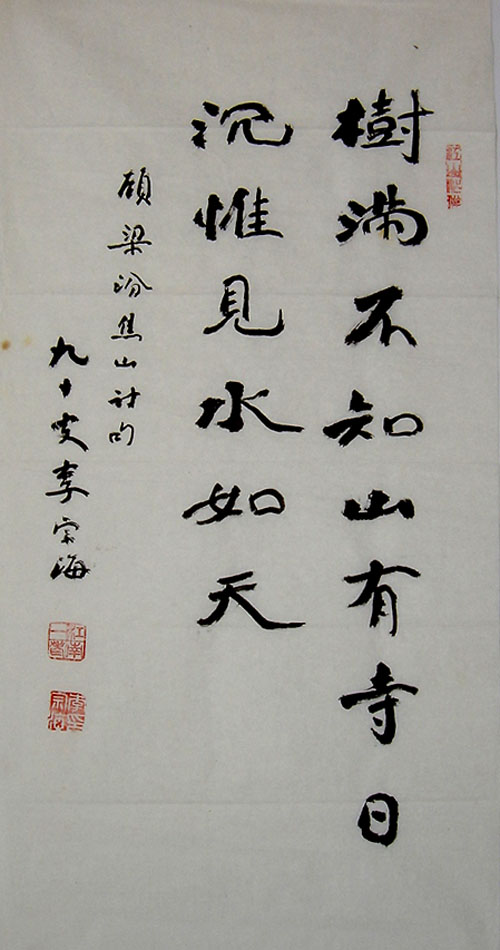 樹滿不知山有寺日
沉惟見水如天
顧梁汾焦山詩句
九十叟李宗海